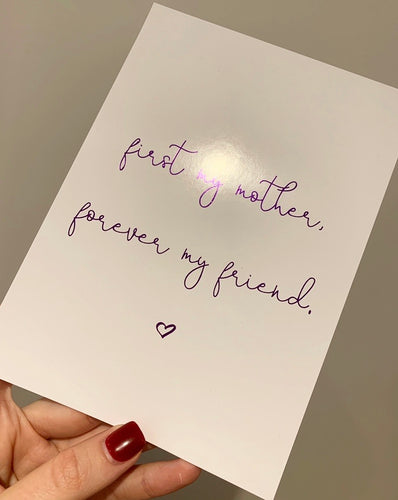 first my mother,
forever my friend.